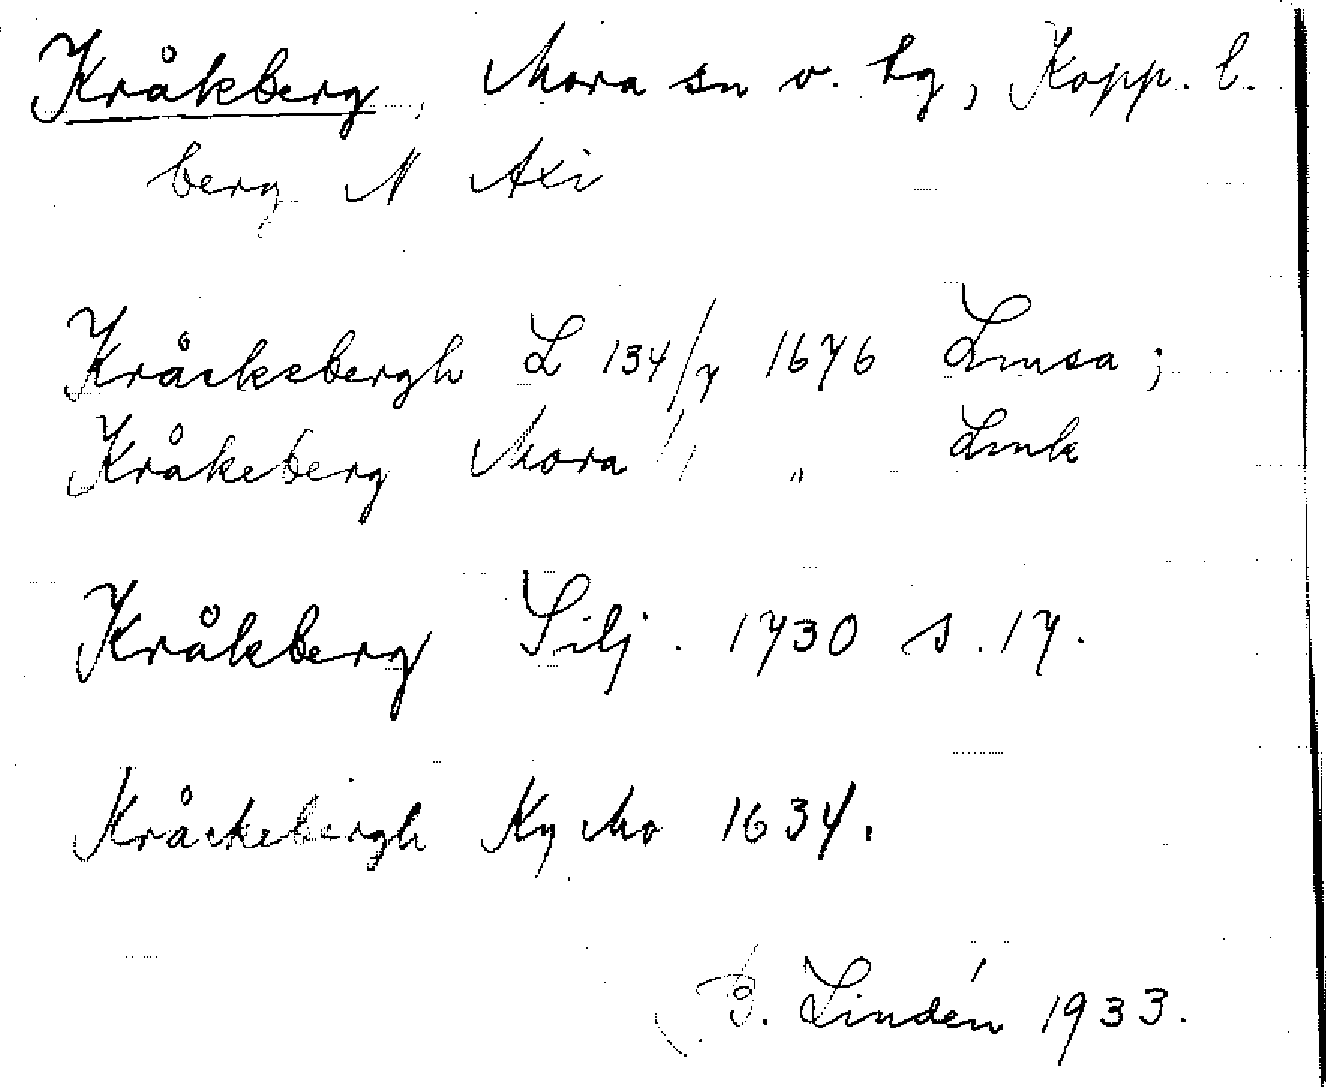 Kråkberg, Mora sn o. tg, Kopp. l.
berg N Axi
Kråckebergh L 134/7 1676 Lmsa;
Kråkeberg Mora " Lmk
Kråkberg Silj. 1730 s. 17.
Kråckebergh Ky Mo 1634.
B. Lindén 1933.